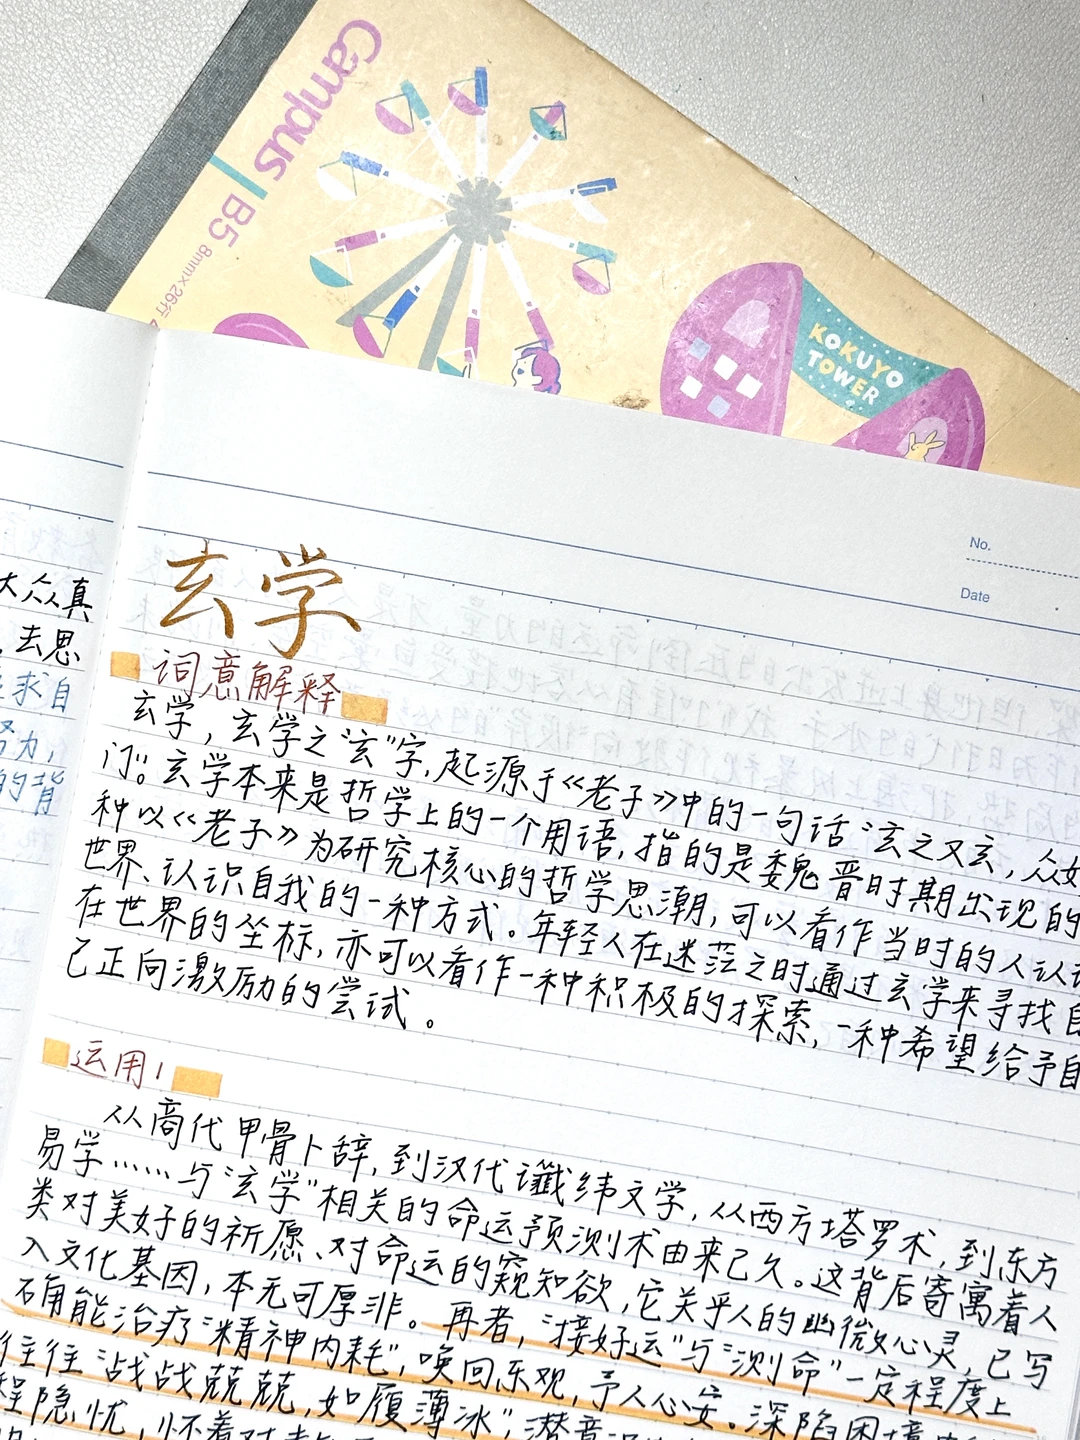 Campus
B5 8mm×26行
KOKUYO
TOWER
No.
Date
大众真
去思
求自
努力,
的背
玄学
词意解释
玄学,玄学之“玄”字,起源于《老子》中的一句话“玄之又玄,众妙
门”。玄学本来是哲学上的一个用语,指的是魏晋时期出现的
种以《老子》为研究核心的哲学思潮,可以看作当时的人认识
世界、认识自我的一种方式。年轻人在迷茫之时通过玄学来寻找自
在世界的坐标,亦可以看作一种积极的探索,一种希望给予自
己正向激励的尝试。
运用1
从商代甲骨卜辞,到汉代谶纬文学,从西方塔罗术,到东方
易学……与“玄学”相关的命运预测术由来已久。这背后寄寓着人
类对美好的祈愿、对命运的窥知欲,它关乎人的幽微心灵,已写
入文化基因,本无可厚非。再者,“接好运”与“测命”一定程度上
确能治疗“精神内耗”,唤回乐观,予人心安。深陷困境
往往“战战兢兢,如履薄冰”,潜意识
程隐忧,怀着对